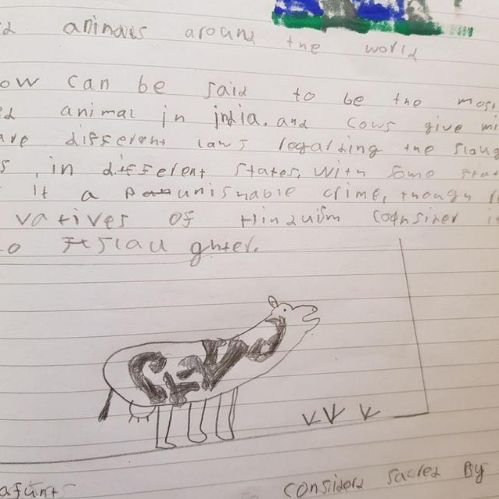 animals around the world
ow can be said to be the mos
animal in india. and cows give mi
are different laws regarding the slaug
s, in different states, with some stat
it a punishable crime, though
vatives of
o slau ghter.
considerd sacred By